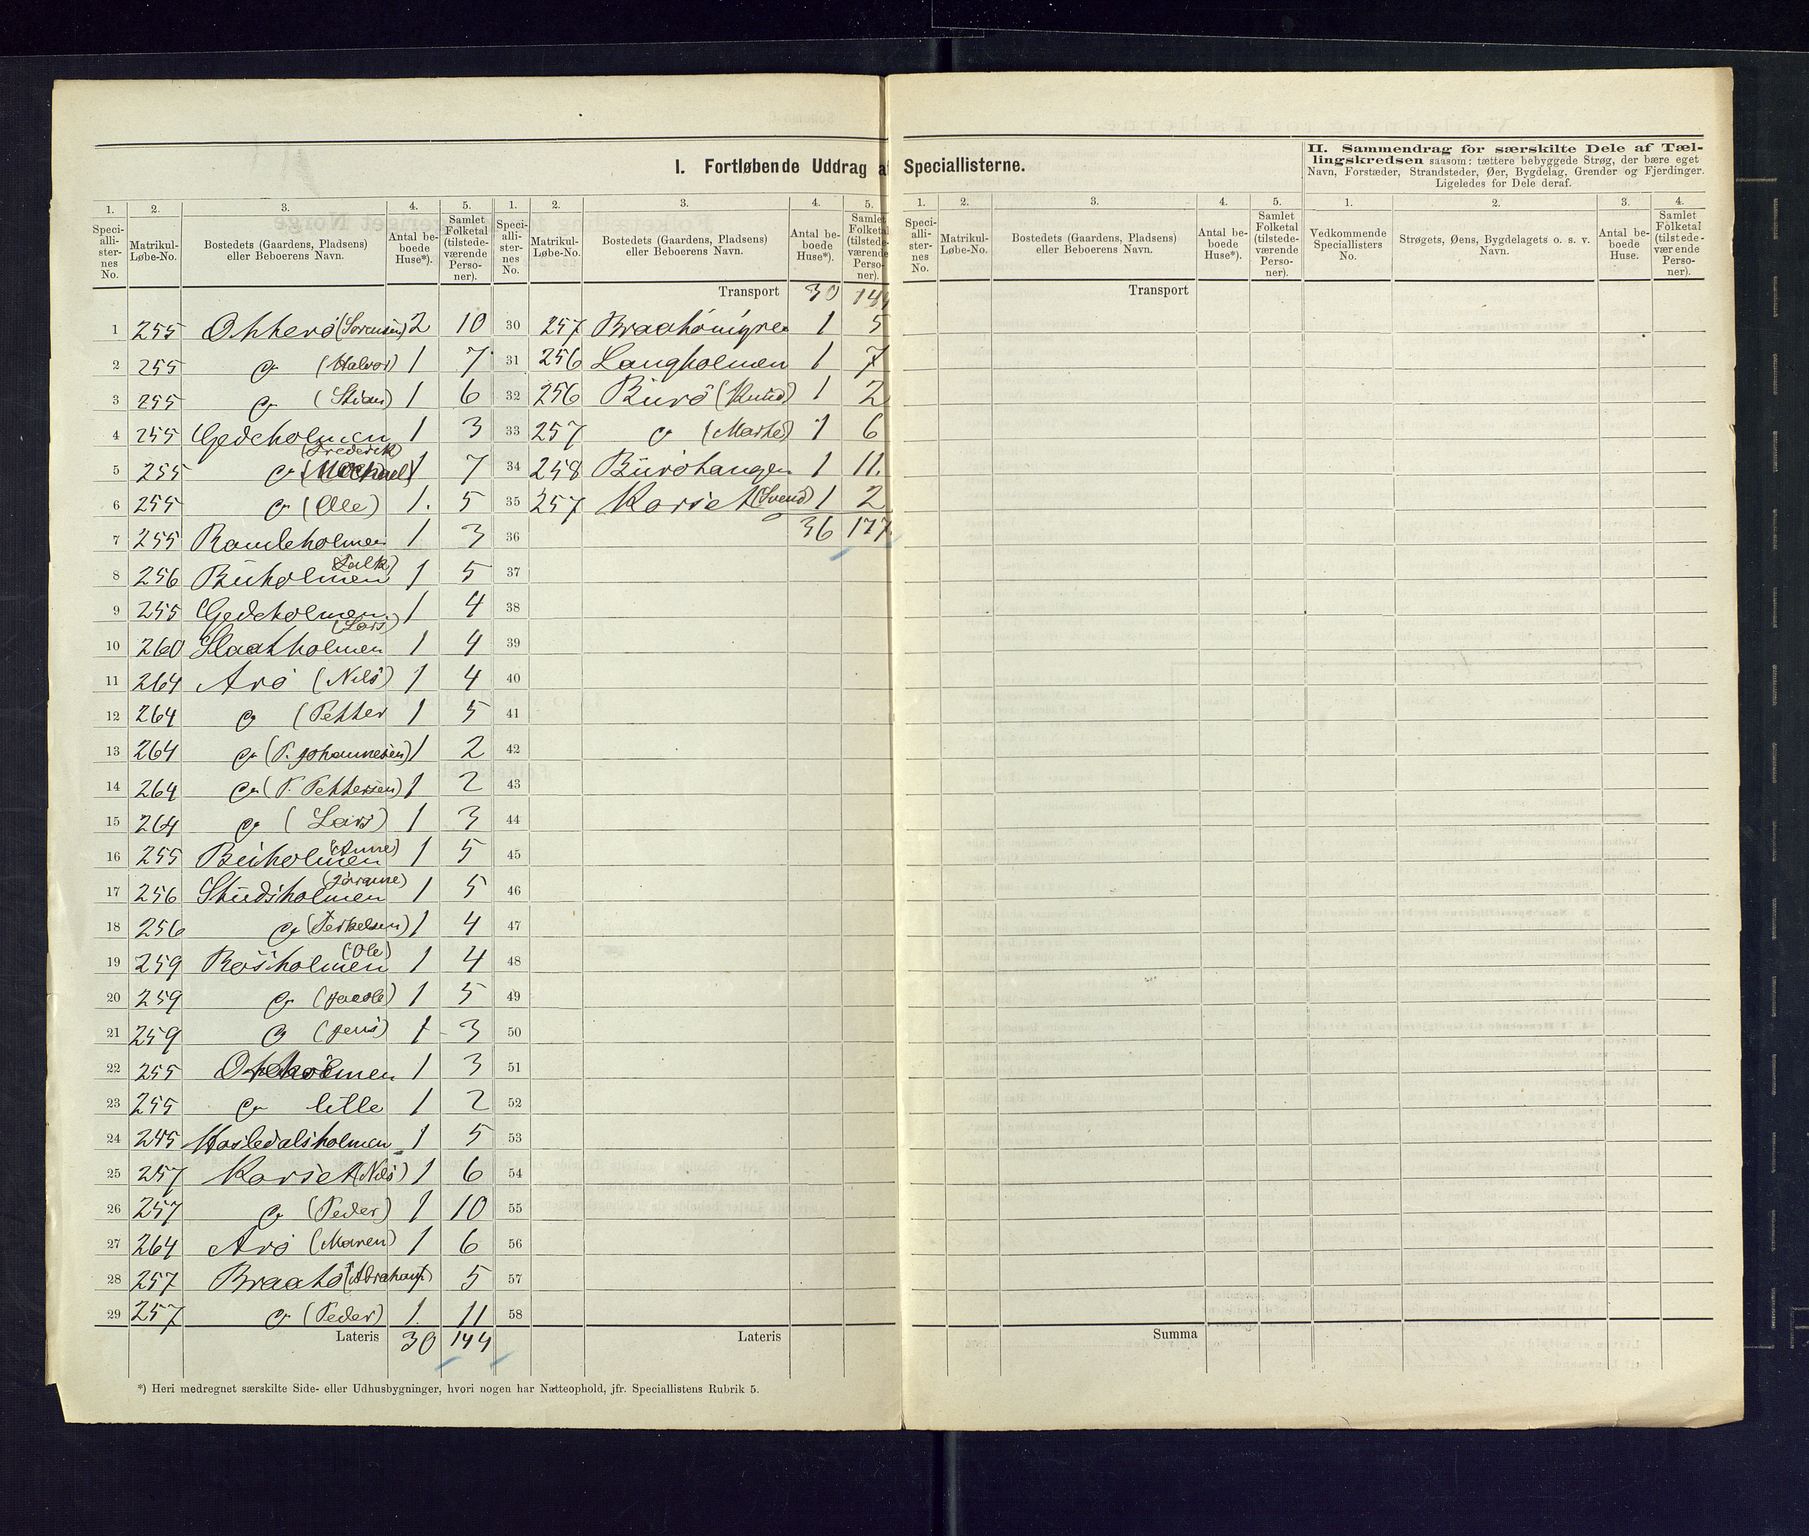 I. Fortløbende Uddrag af Speciallisterne.
II. Sammendrag for særskilte Dele af Tæl-
lingskredsen saasom: tættere bebyggede Strøg, der bære eget
Navn, Forstæder, Strandsteder, Øer, Bygdelag, Grender og Fjerdinger.
Ligeledes for Dele deraf.
1. 2. 3. 4. 5.
Speci-alli-ster-nes No. Matrikul-Løbe-No. Bostedets (Gaardens, Pladsens) eller Beboerens Navn. Antal be-boede Huse*). Samlet Folketal (tilstede-værende Perso-ner).
1 255 Okkerö (Sorensen) 2 10
2 255 do (Halvor) 1 7
3 255 do (Stian) 1 6
4 255 Gedeholmen 1 3
5 255 do (Frederik) 1 7
6 255 do (Ole) 1. 5
7 255 Ramleholmen 1 3
8 256 Buholmen (Falk) 1 5
9 255 Gedeholmen 1 4
10 260 Slaatholmen (Lars) 1 4
11 264 Arö (Nils) 1 4
12 264 do (Petter 1 5
13 264 do (P. Johannesen) 1 2
14 264 do (P. Pettersen) 1 2
15 264 do (Lars) 1 3
16 255 Buholmen (Anne) 1 5
17 256 Studsholmen (Jörgine) 1 5
18 256 do (Terkelsen) 1 4
19 259 Rösholmen (Ole) 1 4
20 259 do (Jacob) 1 5
21 259 do (Jens) 1 3
22 255 1 3
23 255 do lille 1 2
24 255 Hasledalsholmen 1 5
25 257 Korset (Nils) 1 6
26 257 do (Peder) 1 10
27 264 Arö (Maren) 1 6
28 257 Braatö (Abraham) 1 5
29 257 do (Peder) 1. 11
Lateris 30 144
1. 2. 3. 4. 5.
Speci-alli-ster-nes No. Matrikul-Løbe-No. Bostedets (Gaardens, Pladsens) eller Beboerens Navn. Antal be-boede Huse*). Samlet Folketal (tilstede-værende Perso-ner).
Transport 30 144
30 257 Braatömyren 1 5
31 256 Langholmen 1 7
32 256 Burö (Knud) 1 2
33 257 do (Marthe) 1 6
34 258 Buröhangen 1 11.
35 257 Korset (Svend) 1 2
36 36 177.
37
38
39
40
41
42
43
44
45
46
47
48
49
50
51
52
53
54
55
56
57
58
Lateris
*) Heri medregnet særskilte Side- eller Udhusbygninger, hvori nogen har Natteophold, jfr. Speciallistens Rubrik 5.
1. 2. 3. 4. 5.
Speci-alli-ster-nes No. Matrikul-Løbe-No. Bostedets (Gaardens, Pladsens) eller Beboerens Navn. Antal be-boede Huse*). Samlet Folketal (tilstede-værende Perso-ner).
Transport
Summa
1. 2. 3. 4.
Vedkommende Speciallisters No. Strøgets, Øens, Bygdelagets o. s. v. Navn. Antal be-boede Huse. Samlet Folketal (tilstede-værende Perso-ner).